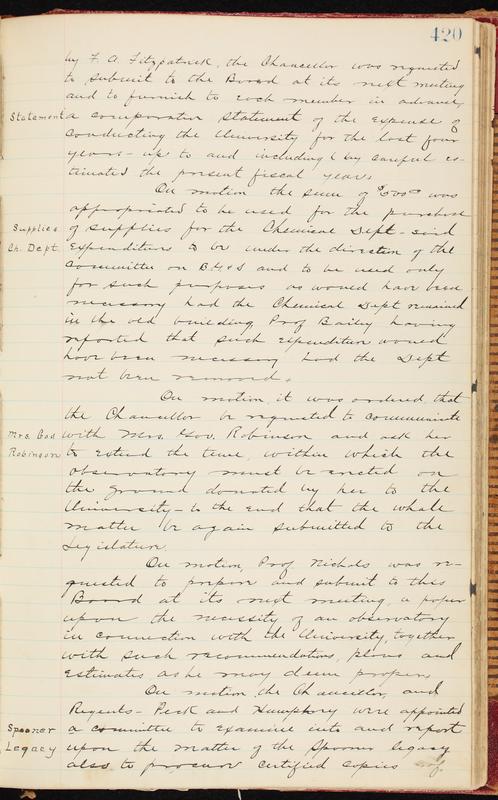 420
by F. A. Fitzpatrick, the Chancellor was requested
to submit to the Board at its next meeting
and to furnish to each member in advance,
Statement a comparative statement of the expense of
conducting the University for the last four
years - up to and including (by careful es-
timates the present fiscal year.
On motion the sum of was
appropriated to be used for the purchase
Supplies of supplies for the Chemical Dept - said
Ch. Dept. Expenditure to be under the direction of the
Committee on B. & G and to be used only
for such purposes as would have been
necessary had the Chemical Dept remained
in the old building, Prof Bailey having
reported that such expenditure would
have been necessary had the Dept
not been removed.
On motion, it was ordered that
the Chancellor be requested to communicate
Mrs. Gov with Mrs. Gov. Robinson and ask her
Robinson to extend the time, within which the
observatory must be erected on
the ground donated by her to the
University - to the end that the whole
matter be again submitted to the
Legislature.
On motion, Prof Nichols was re-
quested to prepare and submit to this
Board at its next meeting, a paper
upon the necessity of an observatory
in connection with the University, together
with such recommendations, plans and
Estimates as he may deem proper.
On motion, the Chancellor, and
Regents - Peck and Humphrey were appointed
Spooner a committee to examine into and report
Legacy upon the matter of the Spooner legacy
also to procure certified copies of